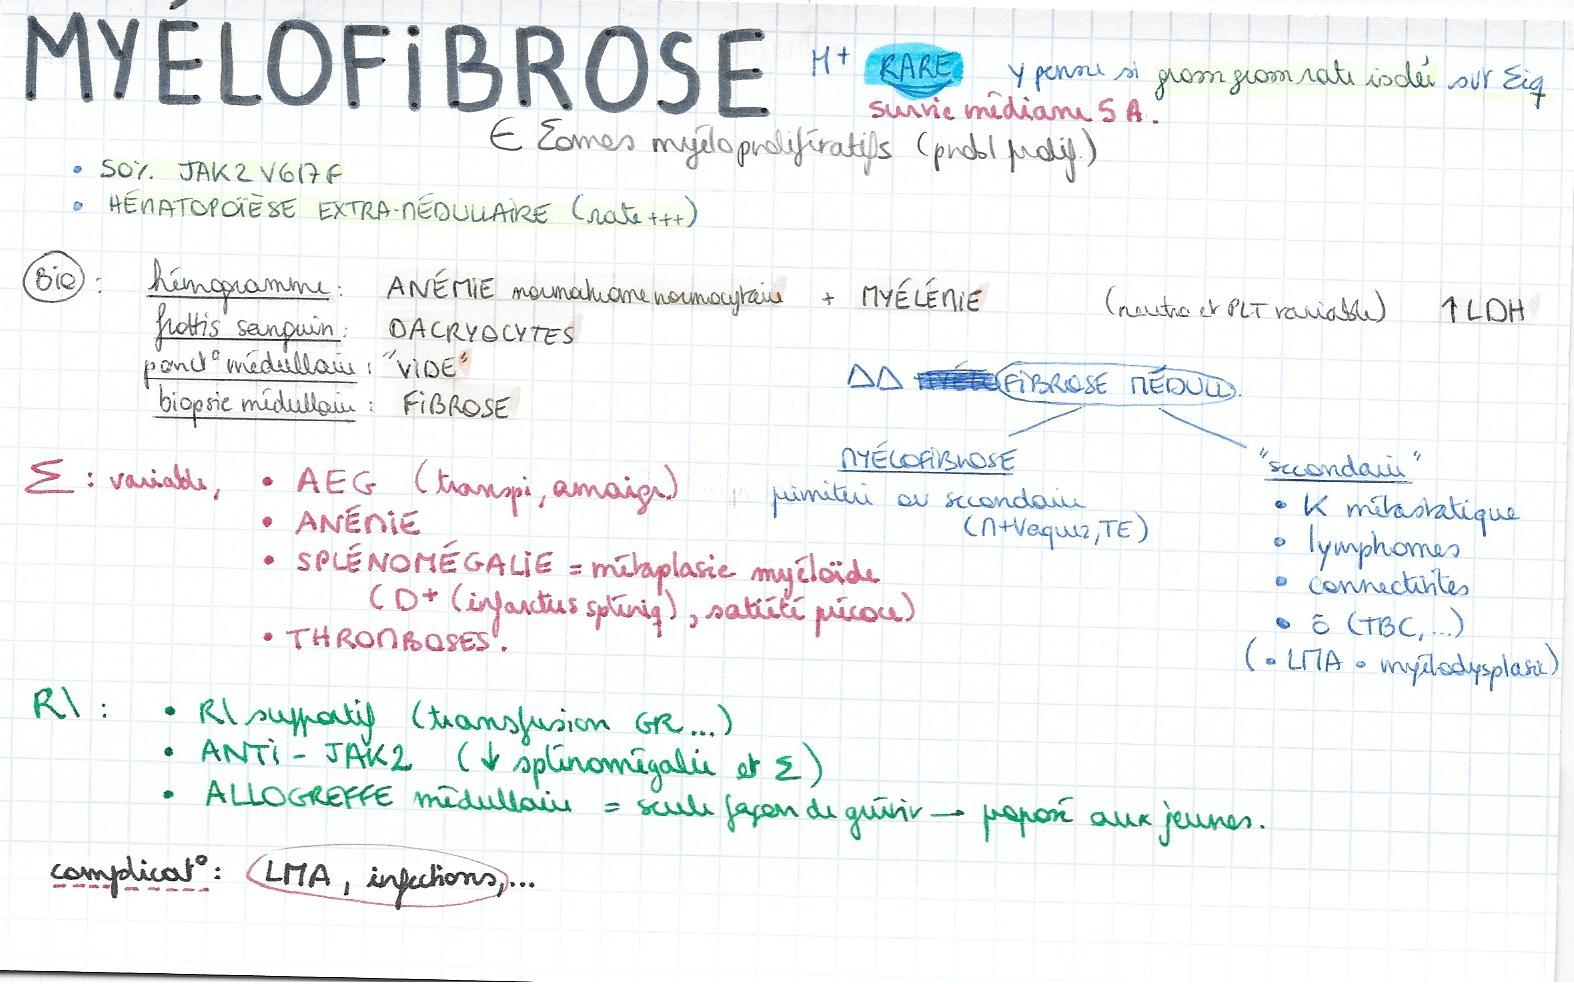 MYÉLOFIBROSE H+ RARE y penser si grosse grosse rate isolée sur Σiq
survie médiane 5 A.
∈ Σomes myéloprolifératifs (probl prolif.)
• 50% JAK2 V617F
• HÉMATOPOÏÈSE EXTRA-MÉDULLAIRE (rate +++)
Bio : hémogramme : ANÉMIE normochrome normocytaire + MYÉLÉMIE (neutro et PLT variable) ↑ LDH
frottis sanguin : DACRYOCYTES
ponct° médullaire : "VIDE"
biopsie médullaire : FIBROSE
ΔΔ FIBROSE MÉDULL.
MYÉLOFIBROSE
primitive ou secondaire
(M+Vaquez, TE)
"secondaire"
• K métastatique
• lymphomes
• connectivites
• (TBC, ...)
(• LMA • myélodysplasie)
Σ : variable, • AEG (transpi, amaigr.)
• ANÉMIE
• SPLÉNOMÉGALIE = métaplasie myéloïde
(D+ (infarctus spléniq), satiété précoce)
• THROMBOSES.
R\ : • R\ supportif (transfusion GR...)
• ANTI-JAK2 (↓ splénomégalie et Σ)
• ALLOGREFFE médullaire = seule façon de guérir → proposé aux jeunes.
complicat° : LMA, infections, ...